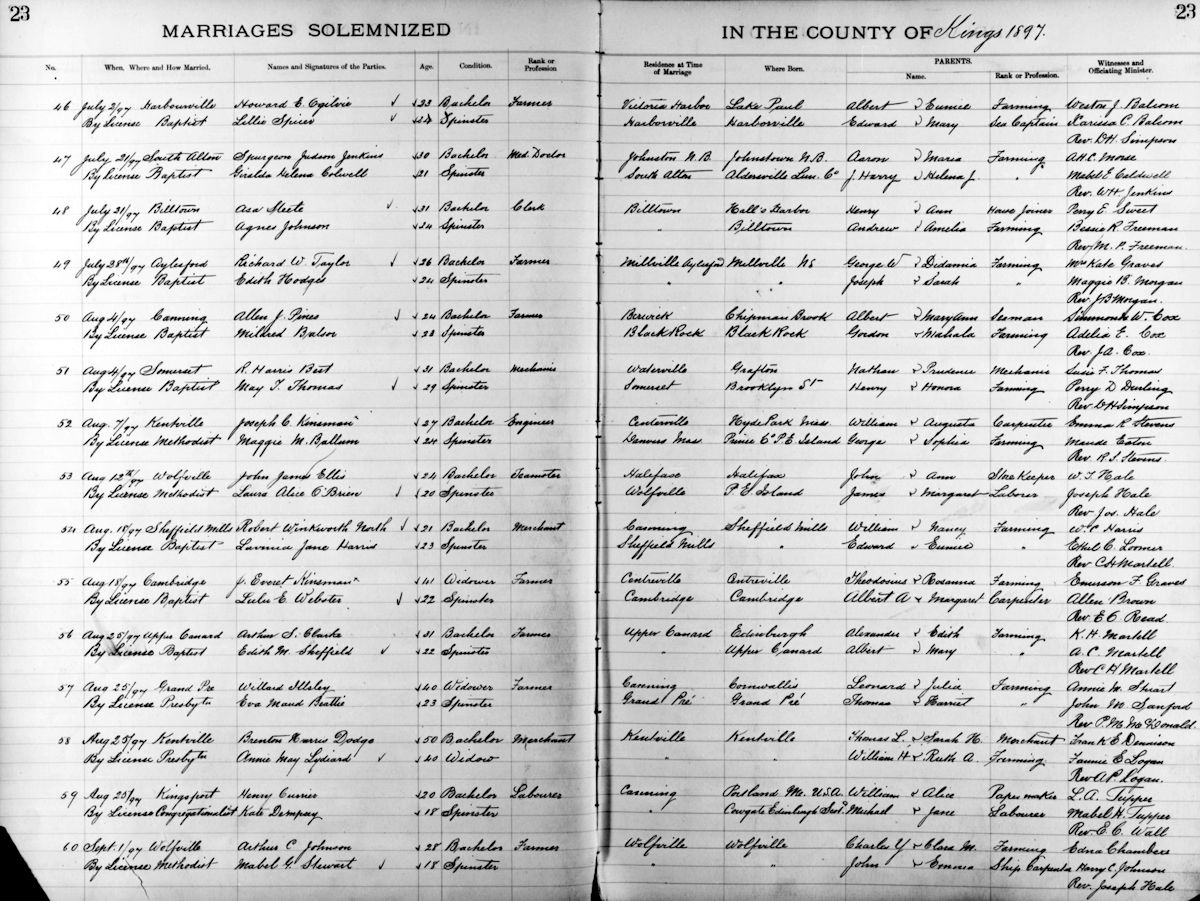 23
23
MARRIAGES SOLEMNIZED IN THE COUNTY OF Kings 1897.
No. When, Where and How Married. Names and Signatures of the Parties. Age. Condition. Rank or Profession Residence at Time of Marriage Where Born. PARENTS. Name. Rank or Profession. Witnesses and Officiating Minister.
46 July 2/97 Harbourville Howard E. Ogilvie 23 Bachelor Farmer Victoria Harbor Lake Paul Albert & Eunice Farming Weston J. Balsom
By License Baptist Lillie Spicer Spinster Harborville Harborville Edward & Mary Sea Captain Karissa C. Balsom
Rev. D.H. Simpson
47 July 21/97 South Alton Spurgeon Judson Jenkins 30 Bachelor Med. Doctor Johnston N.B. Johnstown N.B. Aaron & Maria Farming A.H.C. Morse
By License Baptist Giralda Helena Colwell 21 Spinster South Alton Aldersville Lun. Co J. Harry & Helena J. " Mabel E. Caldwell
Rev. W.H. Jenkins
48 July 21/97 Billtown Asa Steele 31 Bachelor Clerk Billtown Hall's Harbor Henry & Ann House Joiner Perry E. Sweet
By License Baptist Agnes Johnson 24 Spinster " Billtown Andrew & Amelia Farming Bessie R. Freeman
Rev. M. P. Freeman
49 July 28th/97 Aylesford Richard W. Taylor 26 Bachelor Farmer Millville Aylesford Millville NS George W & Didamia Farming Mrs Kate Graves
By License Baptist Edith Hodges 24 Spinster " " Joseph & Sarah " Maggie B. Morgan
Rev. J B Morgan.
50 Aug 4/97 Canning Allen J. Pines 24 Bachelor Farmer Berwick Chipman Brook Albert & Mary Ann Seaman Simmonds W. Cox
By License Baptist Mildred Balsor 23 Spinster Black Rock Black Rock Gordon & Mahala Farming Adelia E. Cox
Rev. J.A. Cox.
51 Aug 4/97 Somerset R. Harris Best 31 Bachelor Mechanic Waterville Grafton Nathan & Prudence Mechanic Susie F. Thomas
By License Baptist May T. Thomas 29 Spinster Somerset Brooklyn St Henry & Honora Farming Perry D Durling
Rev D H Simpson
52 Aug. 7/97 Kentville Joseph C. Kinsman 27 Bachelor Engineer Centerville Hyde Park Mass. William & Augusta Carpenter Emma R Stevens
By License Methodist Maggie M. Ballum 24 Spinster Danvers Mass Prince Co P.E. Island George & Sophia Farming Maude Eaton
Rev. R.S. Stevens.
53 Aug 12th/97 Wolfville John James Ellis 24 Bachelor Teamster Halifax Halifax John & Ann Store Keeper W. T. Hale
By License Methodist Laura Alice O'Brien 20 Spinster Wolfville P E Island James & Margaret Laborer Joseph Hale
Rev. Jos. Hale
54 Aug. 18/97 Sheffield Mills Robert Winkworth North 21 Bachelor Merchant Canning Sheffield Mills William & Nancy Farming W. C Harris
By License Baptist Lavinia Jane Harris 23 Spinster Sheffield Mills " Edward & Eunice " Ethel C. Loomer
Rev C H Martell
55 Aug 18/97 Cambridge J. Everet Kinsman 41 Widower Farmer Centreville Centreville Theodosius & Rosanna Farming Emerson F. Graves
By License Baptist Lulu E. Webster 22 Spinster Cambridge Cambridge Albert A & Margaret Carpenter Allen Brown
Rev. E.O. Read
56 Aug 25/97 Upper Canard Arthur S. Clarke 31 Bachelor Farmer Upper Canard Edinburgh Alexander & Edith Farming K. H. Martell
By License Baptist Edith M. Sheffield 22 Spinster " Upper Canard Albert & Mary " A. C. Martell
Rev C H Martell
57 Aug 25/97 Grand Pre Willard Illsley 40 Widower Farmer Canning Cornwallis Leonard & Julia Farming Annie M. Stuart
By License Presbytn Eva Maud Beattie 23 Spinster Grand Pré Grand Pré Thomas & Harriet " John M. Sanford
Rev P. M. McDonald.
58 Aug 25/97 Kentville Brenton Harris Dodge 50 Bachelor Merchant Kentville Kentville Thomas L. & Sarah H. Merchant Frank E. Dennison
By License Presbytn Annie May Lydiard 40 Widow " " William H & Ruth A. Farming Fannie E Logan
Rev A P. Logan.
59 Aug 25/97 Kingsport Henry Currier 20 Bachelor Labourer Canning Portland Me. U.S.A. William & Alice Paper maker L. A. Tupper
By License Congregationalist Kate Dempsey 18 Spinster " Cowgate Edinburgh Scotd Michael & Jane Labourer Mabel H. Tupper
Rev. E. C. Wall
60 Sept. 1/97 Wolfville Arthur C Johnson 28 Bachelor Farmer Wolfville Wolfville Charley Y & Clara M. Farming Edna Chambers
By License Methodist Mabel G. Stewart 18 Spinster " " John & Emma Ship Carpenter Harry C. Johnson
Rev. Joseph Hale